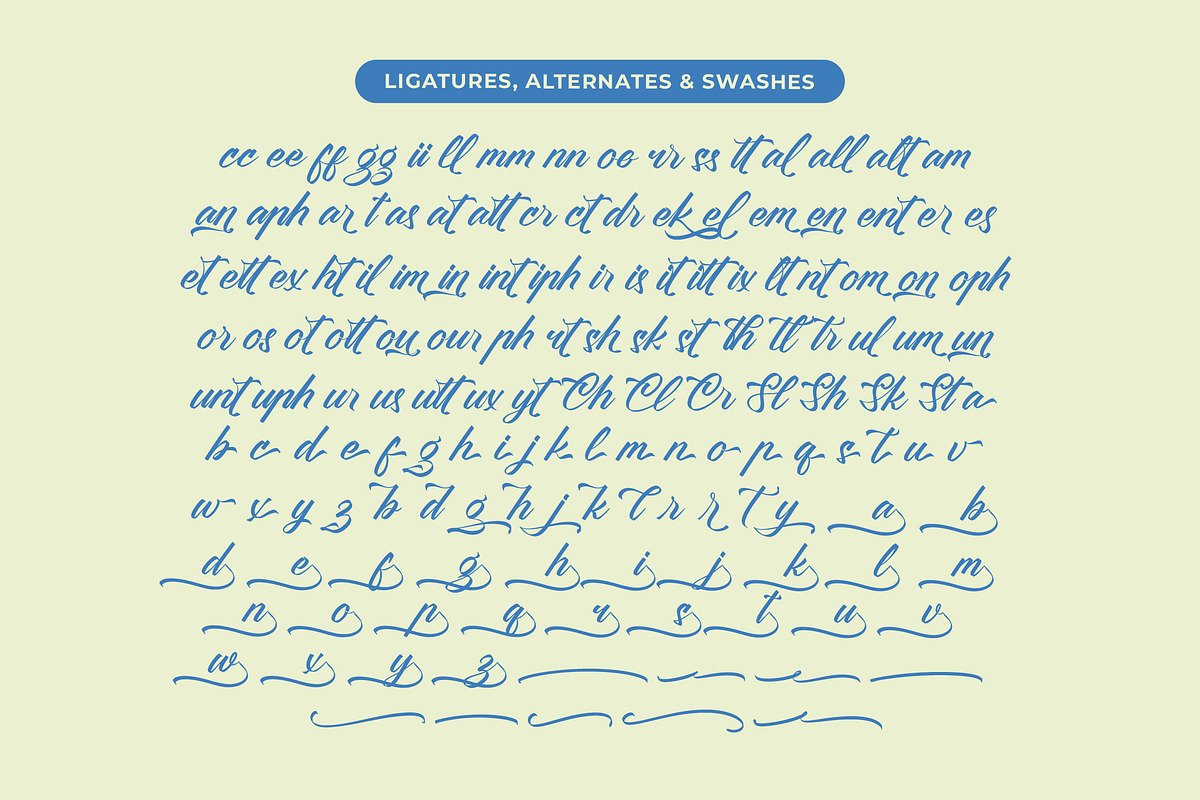 LIGATURES, ALTERNATES & SWASHES
cc ee ff gg ii ll mm nn oo rr ss tt al all alt am
an aph ar t as at att cr ct dr ek el em en ent er es
et ett ex ht il im in int iph ir is it itt ix lt nt om on oph
or os ot ott ou our ph rt sh sk st th tl tr ul um un
unt uph ur us utt ux yt Ch Cl Cr Sl Sh Sk St a
b c d e f g h i j k l m n o p q s t u v
w x y z b d g h j k l r r T y a b
d e f g h i j k l m
n o p q r s t u v
w x y z